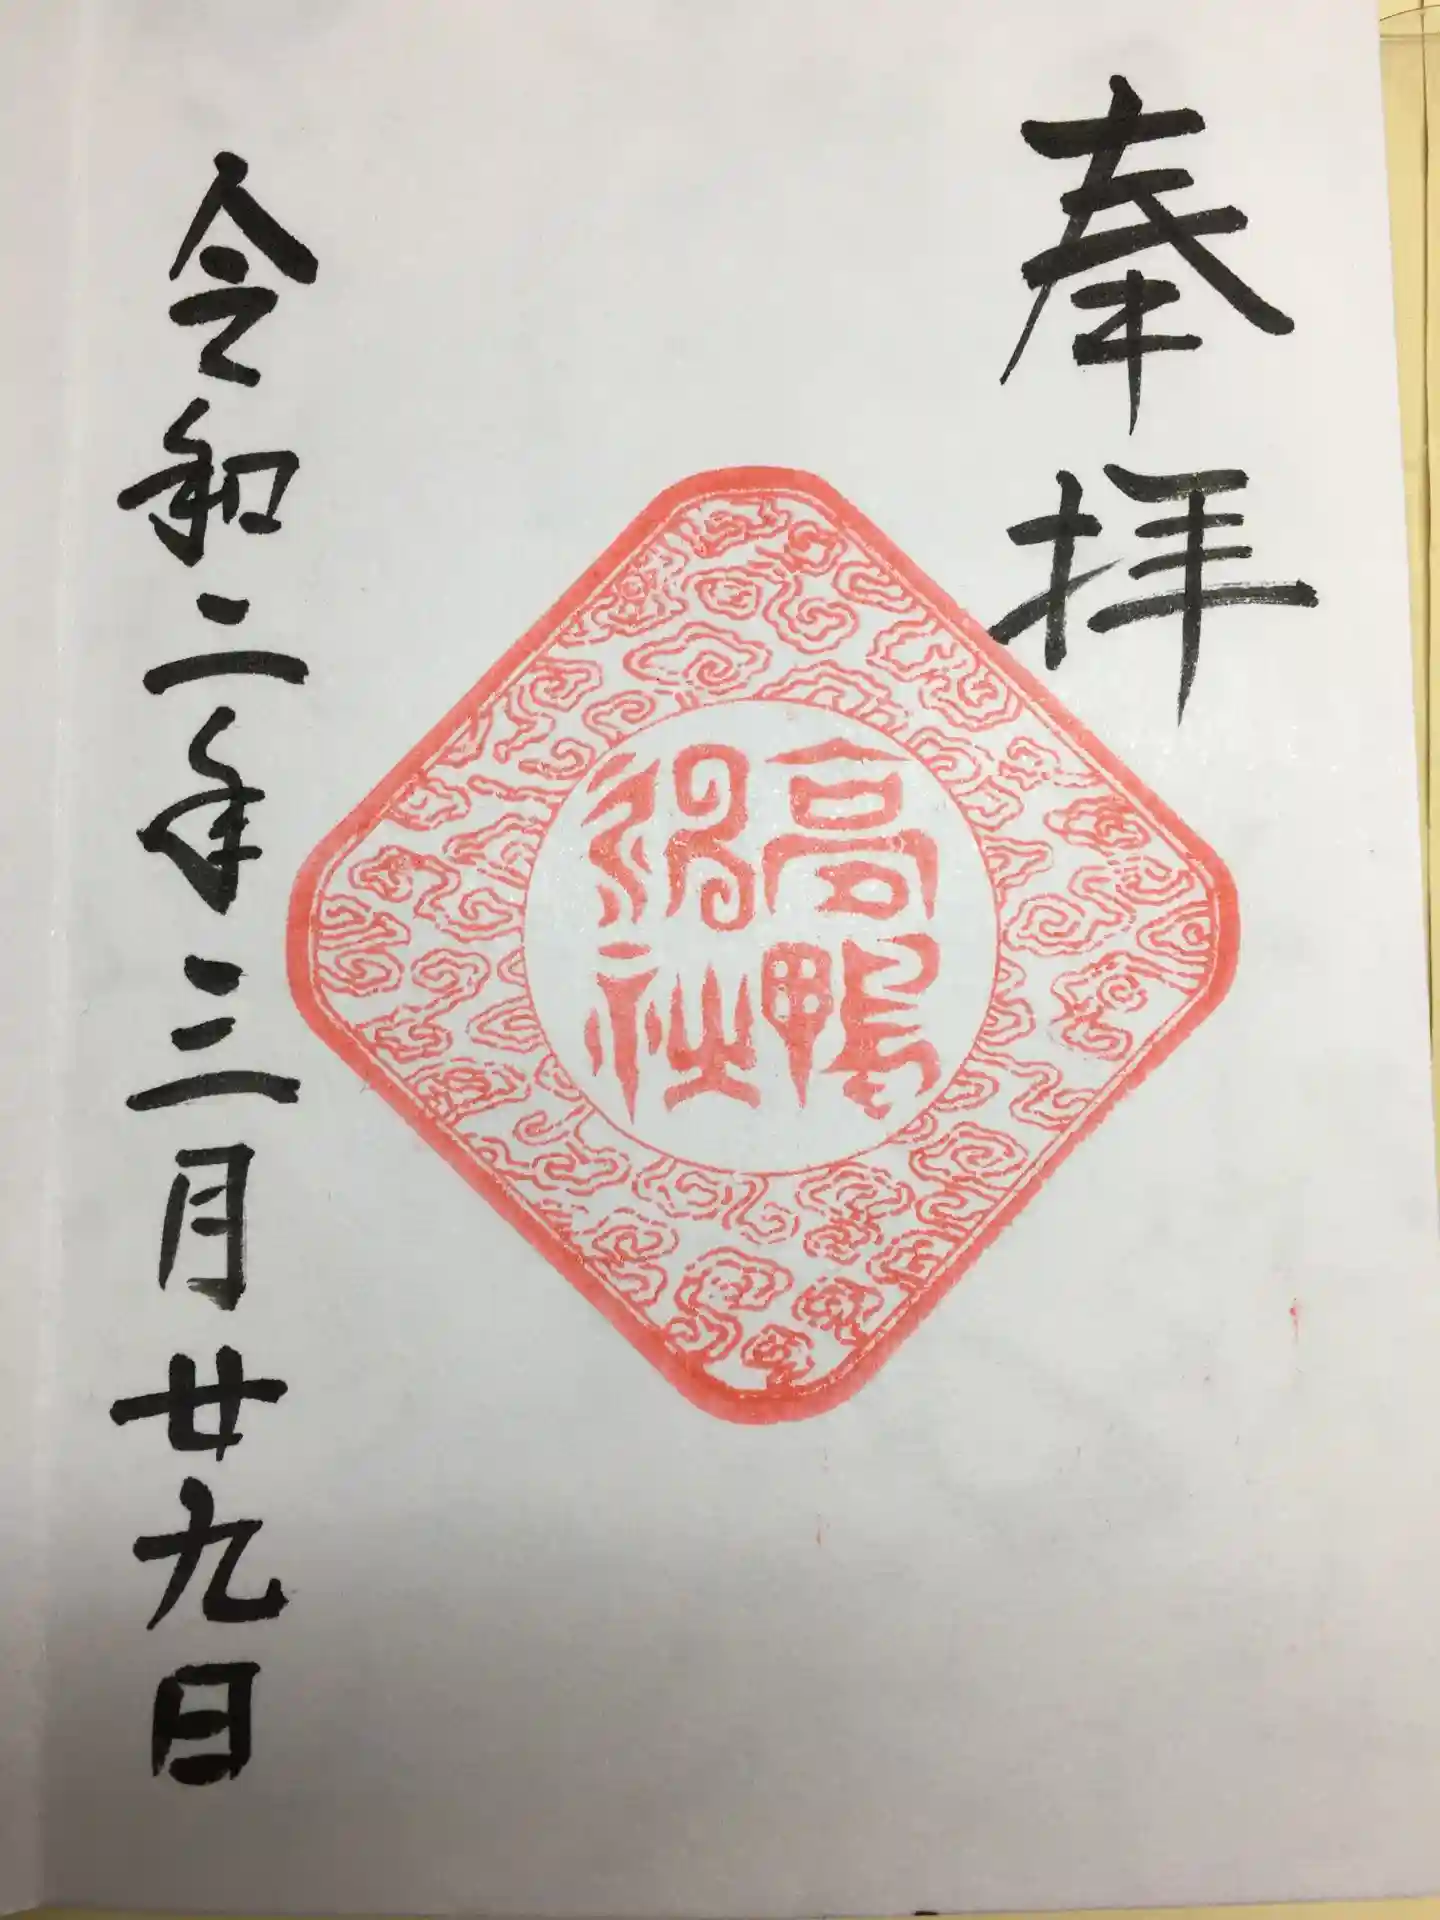 奉拝
高鴨
神社
令和二年三月廿九日